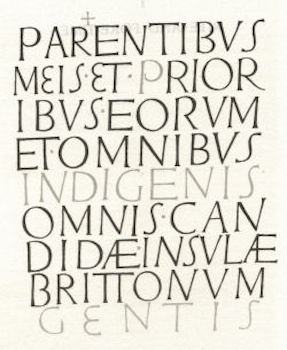 PARENTIBVS
MEIS·ET·PRIOR
IBVS·EORVM
ET·OMNIBVS
INDIGENIS
OMNIS·CAN
DIDÆ·INSVLÆ
BRITTONVM
GENTIS